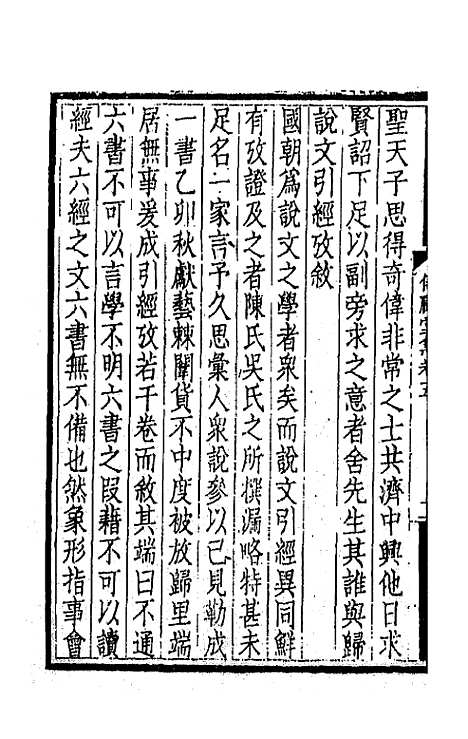 聖天子思得奇偉非常之士共濟中興他日求
賢詔下足以副旁求之意者舍先生其誰與歸
說文引經攷敘
國朝爲說文之學者衆矣而說文引經異同鮮
有攷證及之者陳氏吳氏之所撰漏略特甚未
足名一家言予久思彙人衆說參以己見勒成
一書乙卯秋獻藝棘闈貨不中度被放歸里端
居無事爰成引經攷若干卷而敘其端曰不通
六書不可以言學不明六書之叚藉不可以讀
經夫六經之文六書無不備也然象形指事會